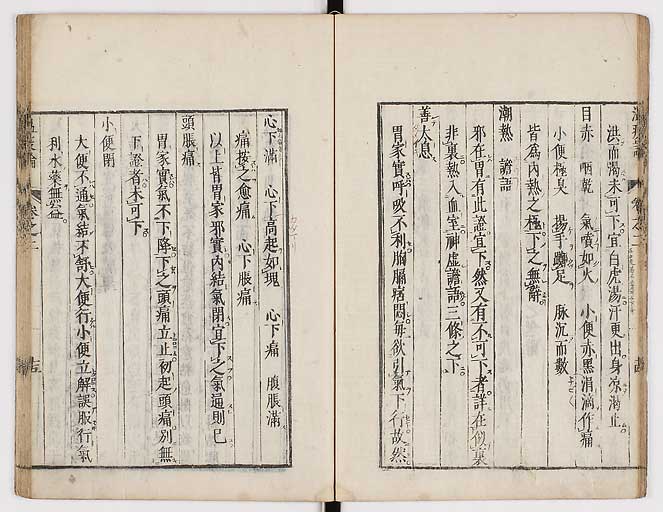 洪而渴未可下宜白虎湯汗更出身凉渴止
目赤　咽乾　氣噴如火　小便赤黑涓滴作痛
小便極臭　揚手躑足　脉沉而數
皆為内熱之極下之無辭
潮熱　譫語
邪在胃有此證宜下然又有不可下者詳在似裏
非裏熱入血室神虚譫語三條之下
善太息
胃家實呼吸不利胸膈痞悶每欲引氣下行故然
心下滿　心下高起如塊　心下痛　腹脹滿
痛按之愈痛　心下脹痛
以上皆胃家邪實内結氣閉宜下之氣通則已
頭脹痛
胃家實氣不下降下之頭痛立止初起頭痛別無
下證者未可下
小便閉
大便不通氣結不舒大便行小便立解誤服行氣
利水藥無益
卷之二